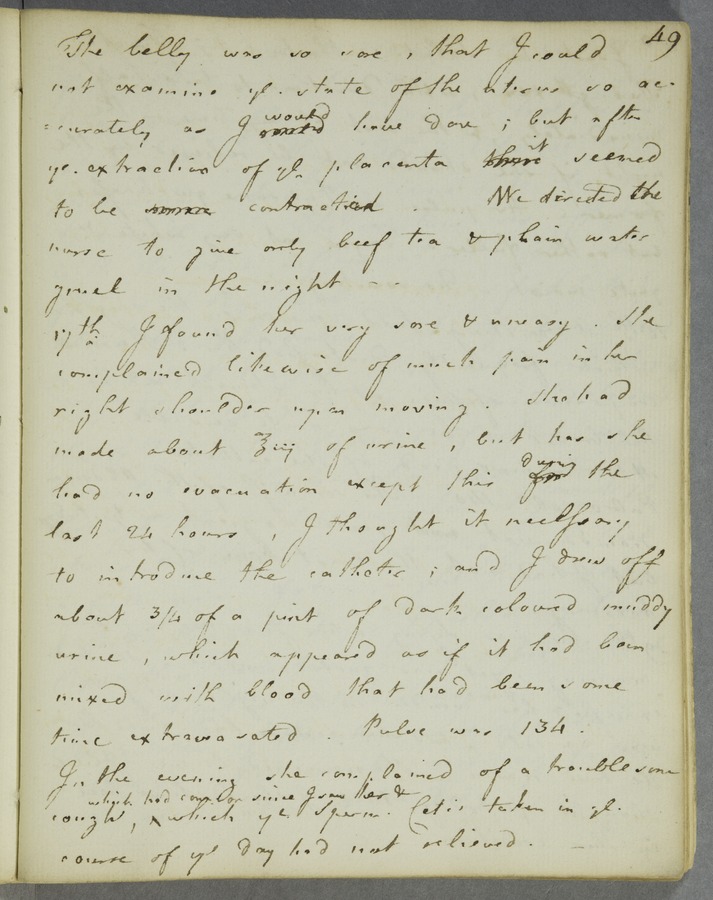 49
The belly was so sore, that I could
not examine ye. state of the uterus so ac-
=curately as I would have done ; but after
ye. extraction of ye placenta it seemed
to be contracted . We directed the
nurse to give only beef tea & plain water
gruel in the night --
17th I found her very sore & uneasy . She
complained likewise of much pain in her
right shoulder upon moving . She had
made about ʒiij of urine , but as she
had no evacuation except this during the
last 24 hours , I thought it necessary
to introduce the catheter ; and I drew off
about 3/4 of a pint of dark coloured muddy
urine , which appeared as if it had been
mixed with blood that had been some
time extravasated . Pulse was 134 .
In the evening she complained of a troublesome
which had come on since I saw her &
cough , ^ which ye Sperm. Ceti taken in ye.
course of ye day had not relieved .